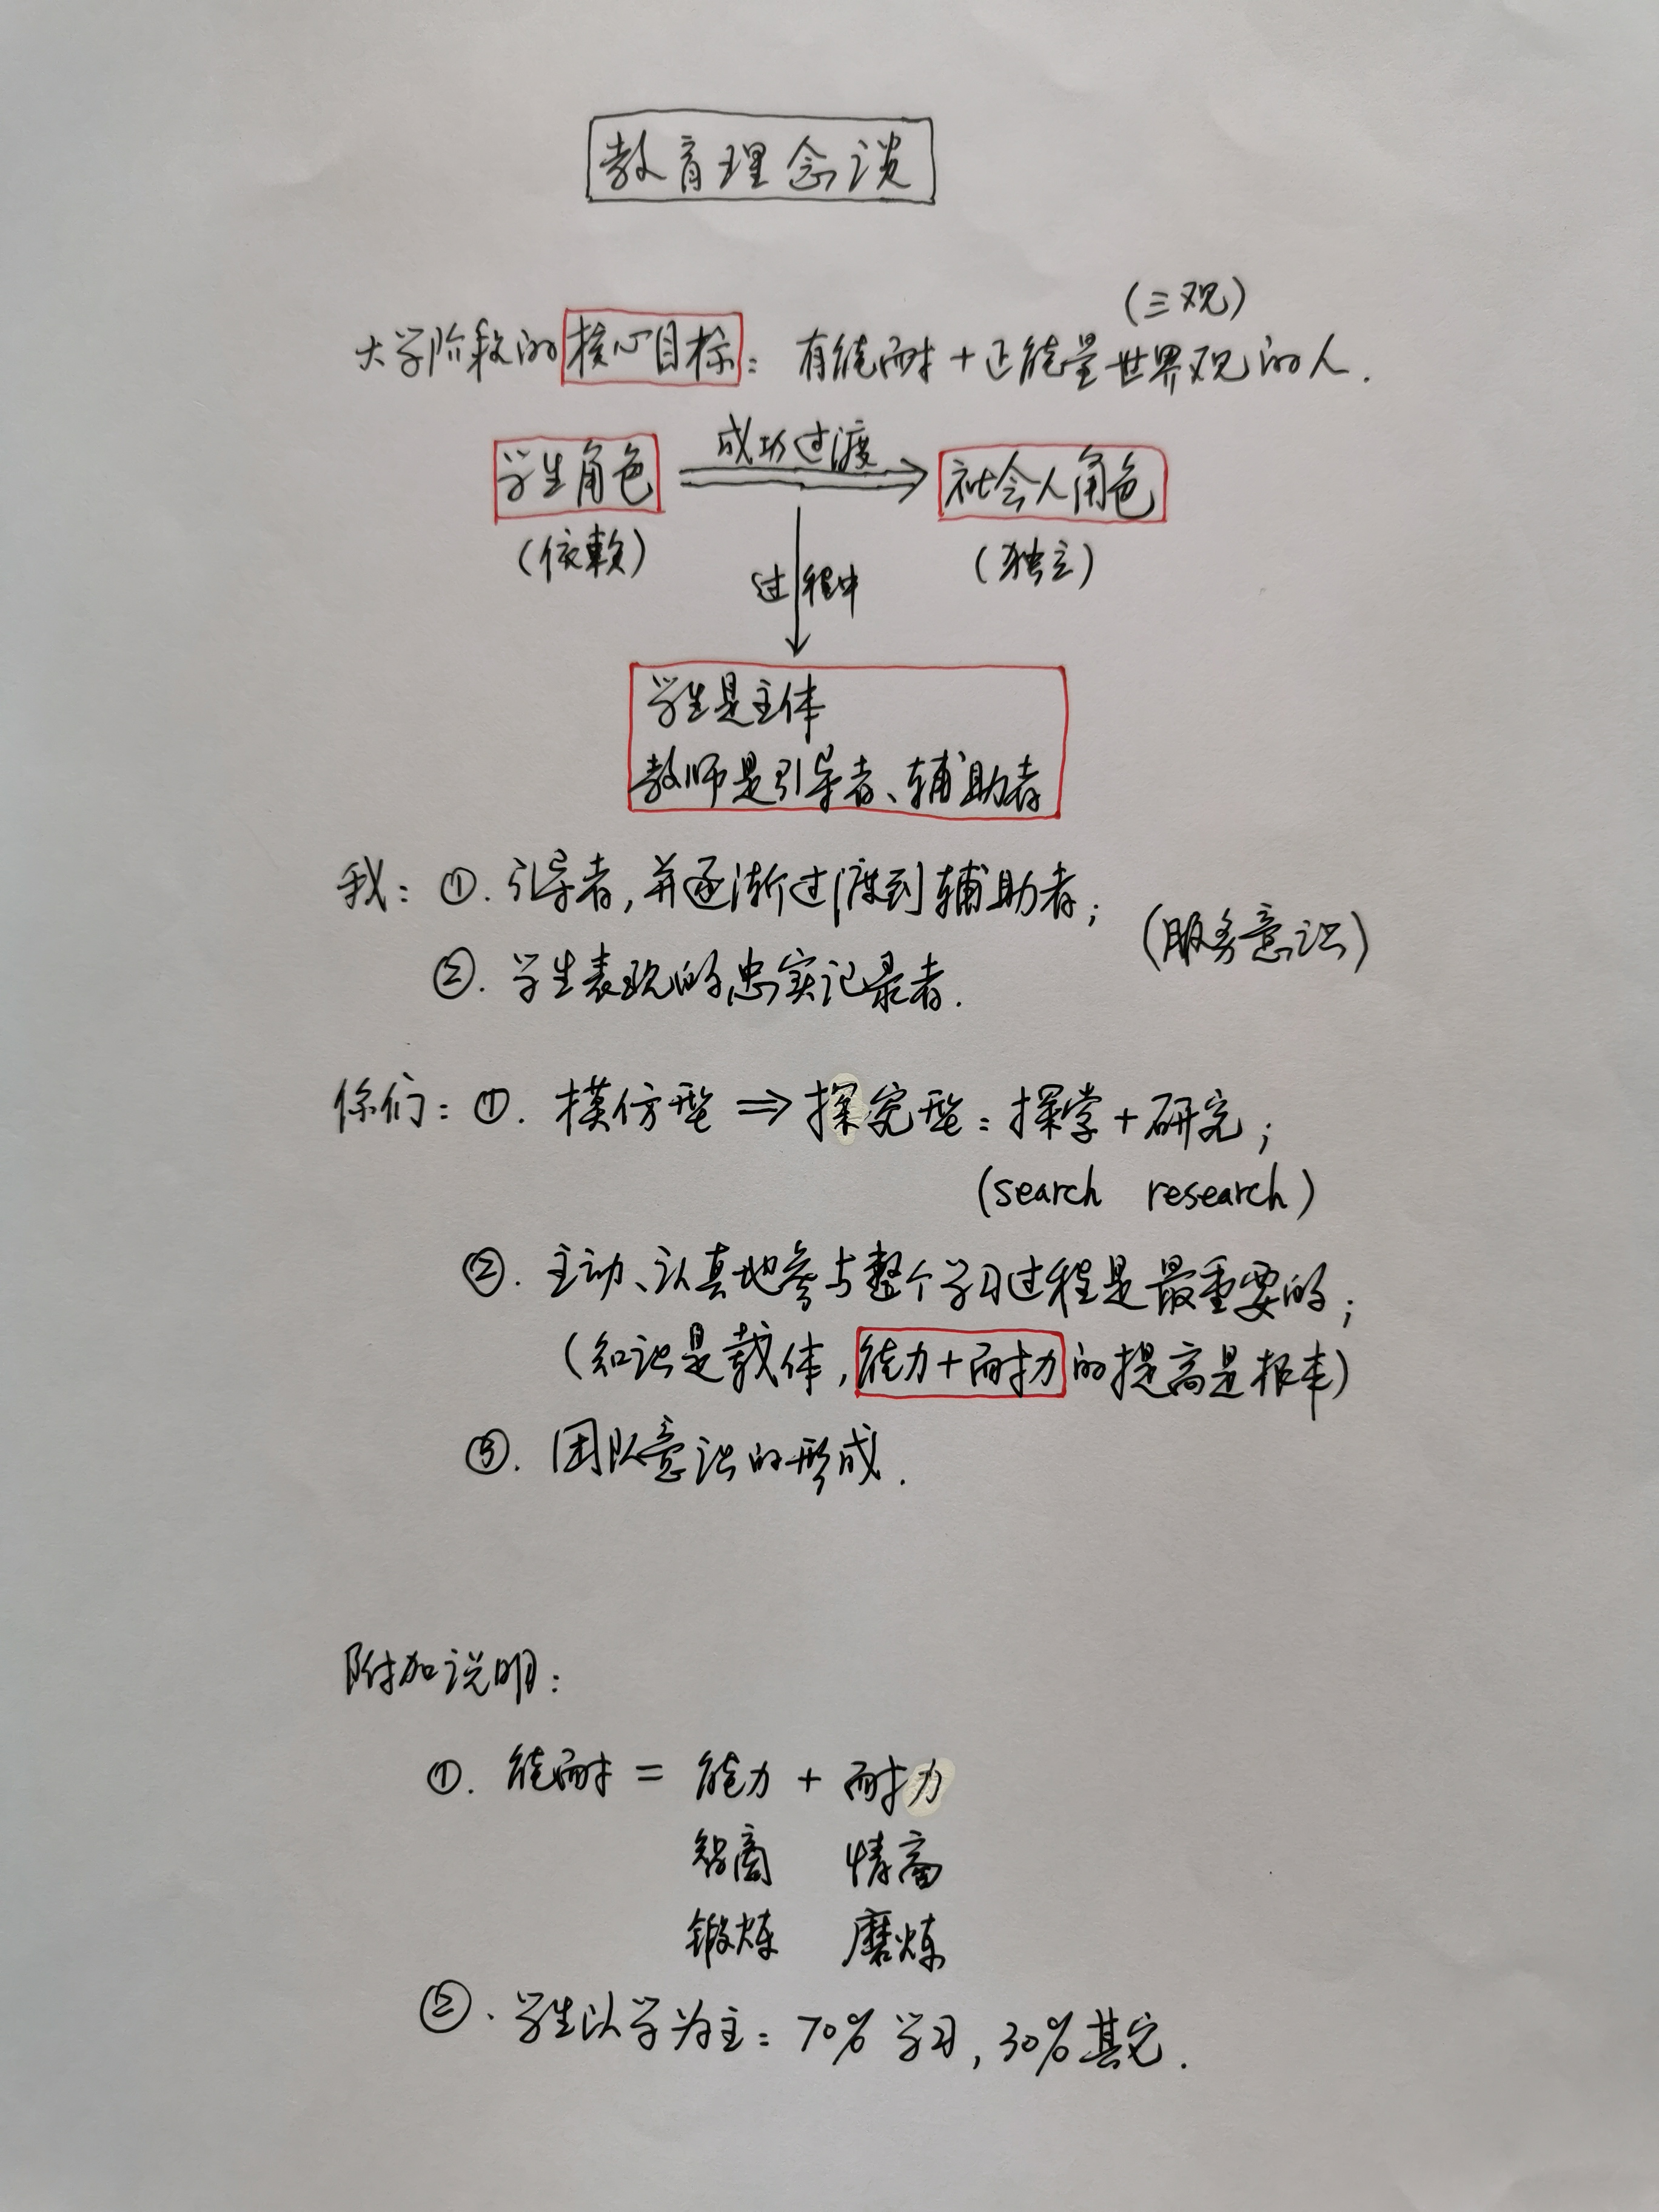 教育理念谈
(三观)
大学阶段的核心目标：有能耐+正能量世界观的人.
成功过渡
学生角色 社会人角色
(依赖) (独立)
过程中
学生是主体
教师是引导者、辅助者
我：①.引导者,并逐渐过渡到辅助者;
(服务意识)
②.学生表现的忠实记录者.
你们：①.模仿型⇒探究型：探学+研究;
(search research)
②.主动、认真地参与整个学习过程是最重要的;
(知识是载体,能力+耐力的提高是根本)
③.团队意识的形成.
附加说明：
①.能耐=能力+耐力
智商 情商
锻炼 磨炼
②.学生以学为主：70%学习,30%其它.